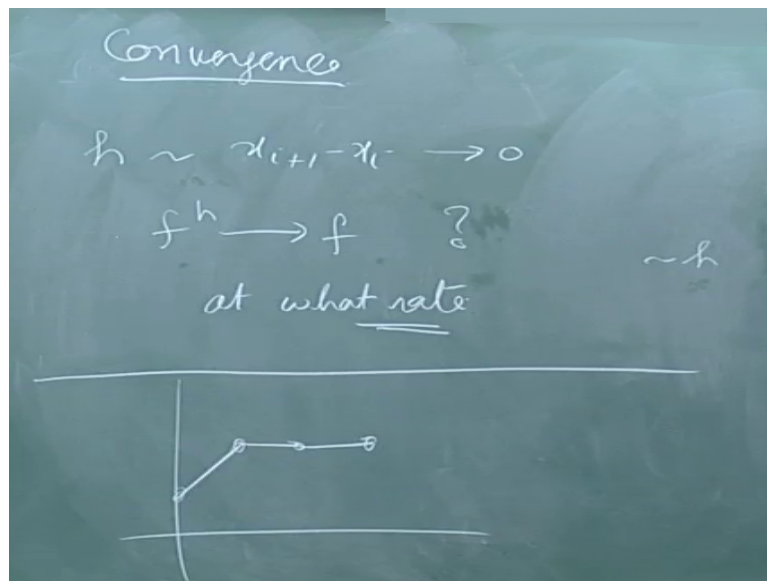 Convergence
h ~ x_{i+1} - x_i → 0
f^h → f ?
~ h
at what rate